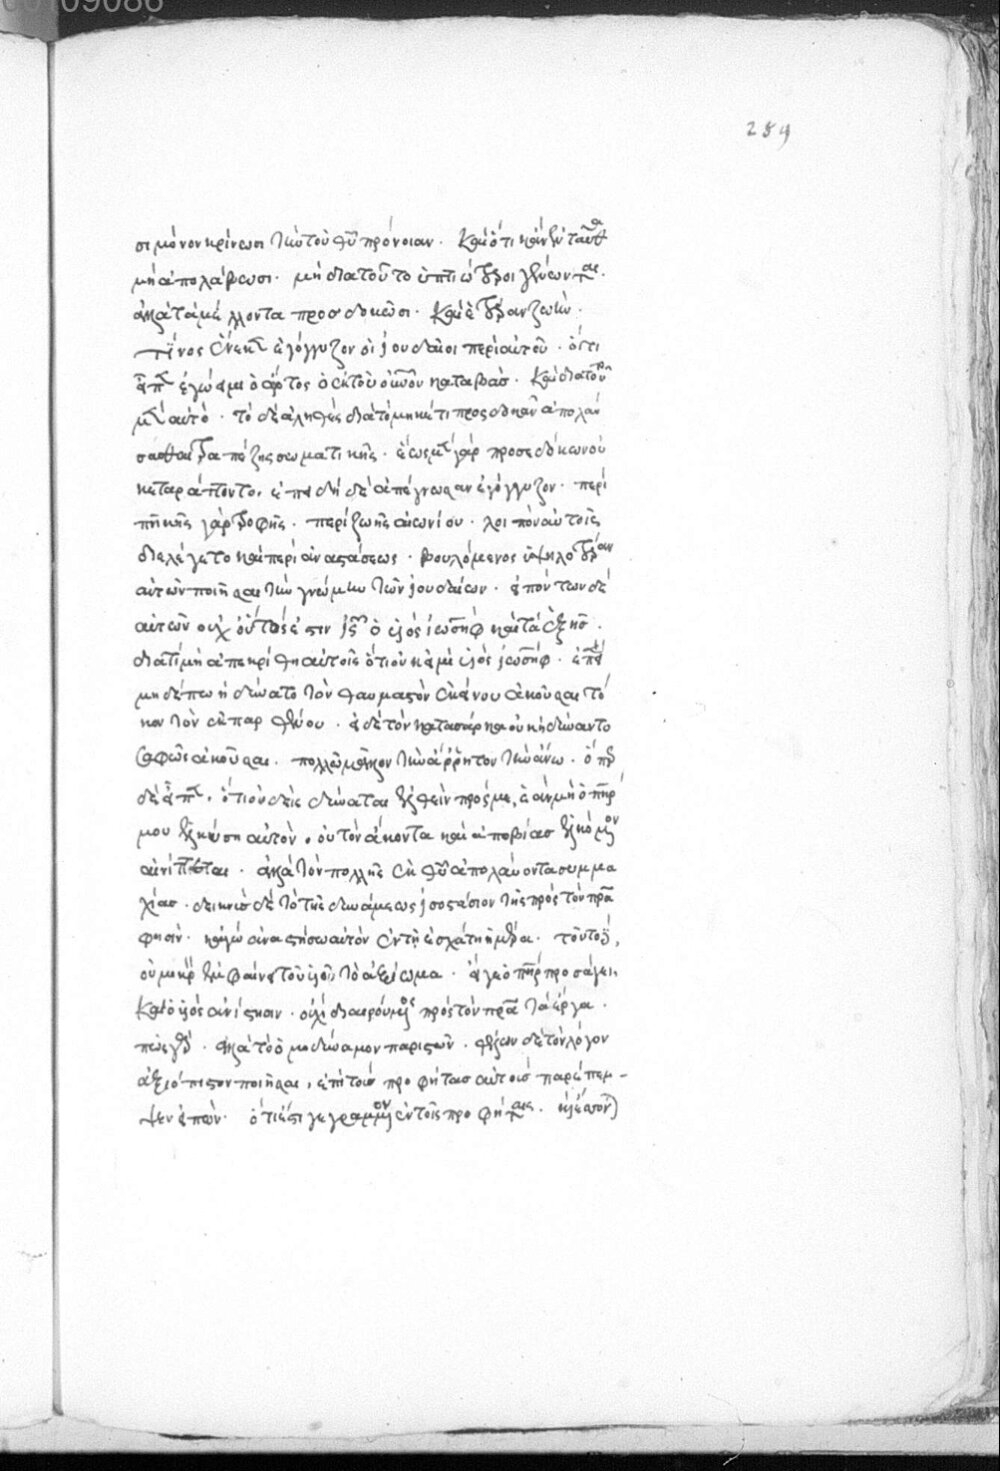 259
σι μόνον κρίνωσι τὴν τοῦ θῦ πρόνοιαν. καὶ ὅτι κἂν ἐνταῦθα
μὴ ἀπολάβωσι. μὴ διὰ τοῦτο ὑπτιώτεροι γένωνται.
ἀλλὰ τὰ μέλλοντα προσδοκῶσι. καὶ ζωὴν.
τίνος ἕνεκεν ἐγόγγυζον οἱ ἰουδαῖοι περὶ αὐτοῦ. ὅτι
εἶπεν ἐγώ εἰμι ὁ ἄρτος ὁ ἐκ τοῦ οὐνοῦ καταβάσ. καὶ διὰ τοῦτο
μὲν αὐτὸ. τὸ δὲ ἀληθὲς διὰ τὸ μηκέτι προσδοκᾶν ἀπολαύ
σασθαι τραπέζης σωματικῆς. ἕως μὲν γὰρ προσεδόκων οὐ
κατεράττοντο. ἐπειδὴ δὲ ἀπέγνωσαν ἐγόγγυζον. περὶ
γὰρ τροφῆς. περὶ ζωῆς αἰωνίου. λοιπὸν αὐτοῖς
διελέγετο καὶ περὶ ἀναστάσεως. βουλόμενος ὑψηλοτέραν
αὐτῶν ποιῆσαι τὴν γνώμην τῶν ἰουδαίων. εἰπόντων δὲ
αὐτῶν οὐχ οὗτός ἐστιν ἰς ὁ υἱὸς ἰωσὴφ καὶ τὰ ἑξῆσ.
διατί μὴ ἀπεκρίθη αὐτοῖς ὅτι οὐκ εἰμὶ υἱὸς ἰωσήφ. ἐπειδὴ
μηδέπω ἠδύνατο τὸν θαυμαστὸν ἐκείνου ἀκοῦσαι τό
κον τὸν ἐκ παρθένου. εἰ δὲ τὸν κατὰ σάρκα οὐκ ἠδύναντο
σαφῶς ἀκοῦσαι. πολλῶ μᾶλλον τὸν ἄρρητον τὸν ἄνω. ὁ
δὲ εἶπεν. ὅτι οὐδεὶς δύναται ἐλθεῖν πρός με, ἐὰν μὴ ὁ πηρ
μου ἑλκύση αὐτὸν. οὐ τὸν ἄκοντα καὶ ἀπὸ βίασ ἑλκόμενον
αἰνίττεται. ἀλλὰ τὸν πολλῆς ἐκ θῦ ἀπολαύοντα συμμα
χίασ. δείκνυσι δὲ τὸ τῆς δυνάμεως ἰσοστάσιον τῆς πρὸς τὸν πρα
φησὶν. κἀγὼ ἀναστήσω αὐτὸν ἐν τῆ ἐσχάτη ἡμέρα. τοῦτο δὲ,
οὐ μικρὸν ἐμφαίνει τοῦ υἱοῦ τὸ ἀξίωμα. εἴγε ὁ πηρ προσάγει,
καὶ ὁ υἱὸς ἀνίστησιν. οὐχὶ διαιρούμενος πρὸς τὸν πρα τὰ ἔργα.
πῶς γάρ. ἀλλὰ τὸ ὁμοδύναμον παριστῶν. θέλων δὲ τὸν λόγον
ἀξιόπιστον ποιῆσαι, ἐπὶ τοὺς προφήτασ αὐτοὺσ παρέπεμ-
ψεν εἰπὼν. ὅτι ἔστι γεγραμμένον ἐν τοῖς προφήταις. καὶ ἔσονται